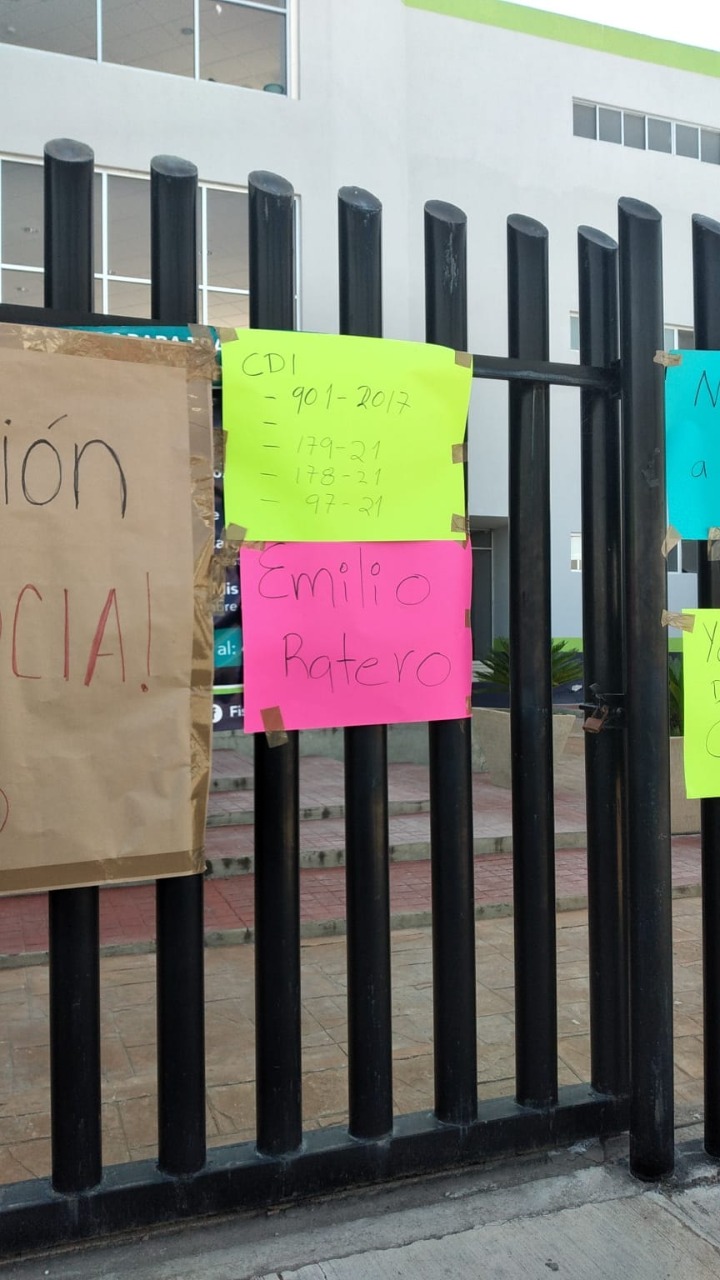 ión
CIA!
CDI
- 901-2017
-
- 179-21
- 178-21
- 97-21
Emilio
Ratero
al:
Fis
N
a